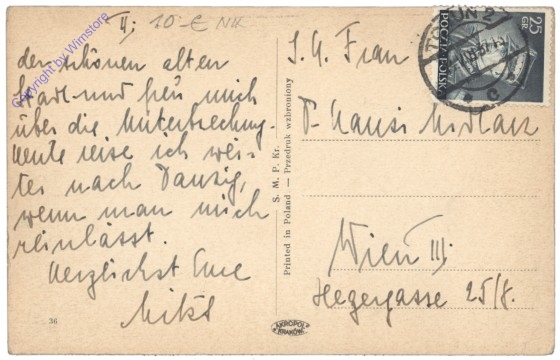 II; 10.- € NK
der schönen alten
Stadt und freu mich
über die Unterbrechung.
Heute reise ich wei-
ter nach Danzig,
wenn man mich
reinlässt.
Herzlichst Eure
36
Copyright by Wimstore
S. M. P. Kr.
Printed in Poland — Przedruk wzbroniony
AKROPOL
KRAKÓW
25
GR
POCZTA POLSKA
TORUŃ 2
C
Frau
Hansi
Wien III;
Hegergasse 25/8.